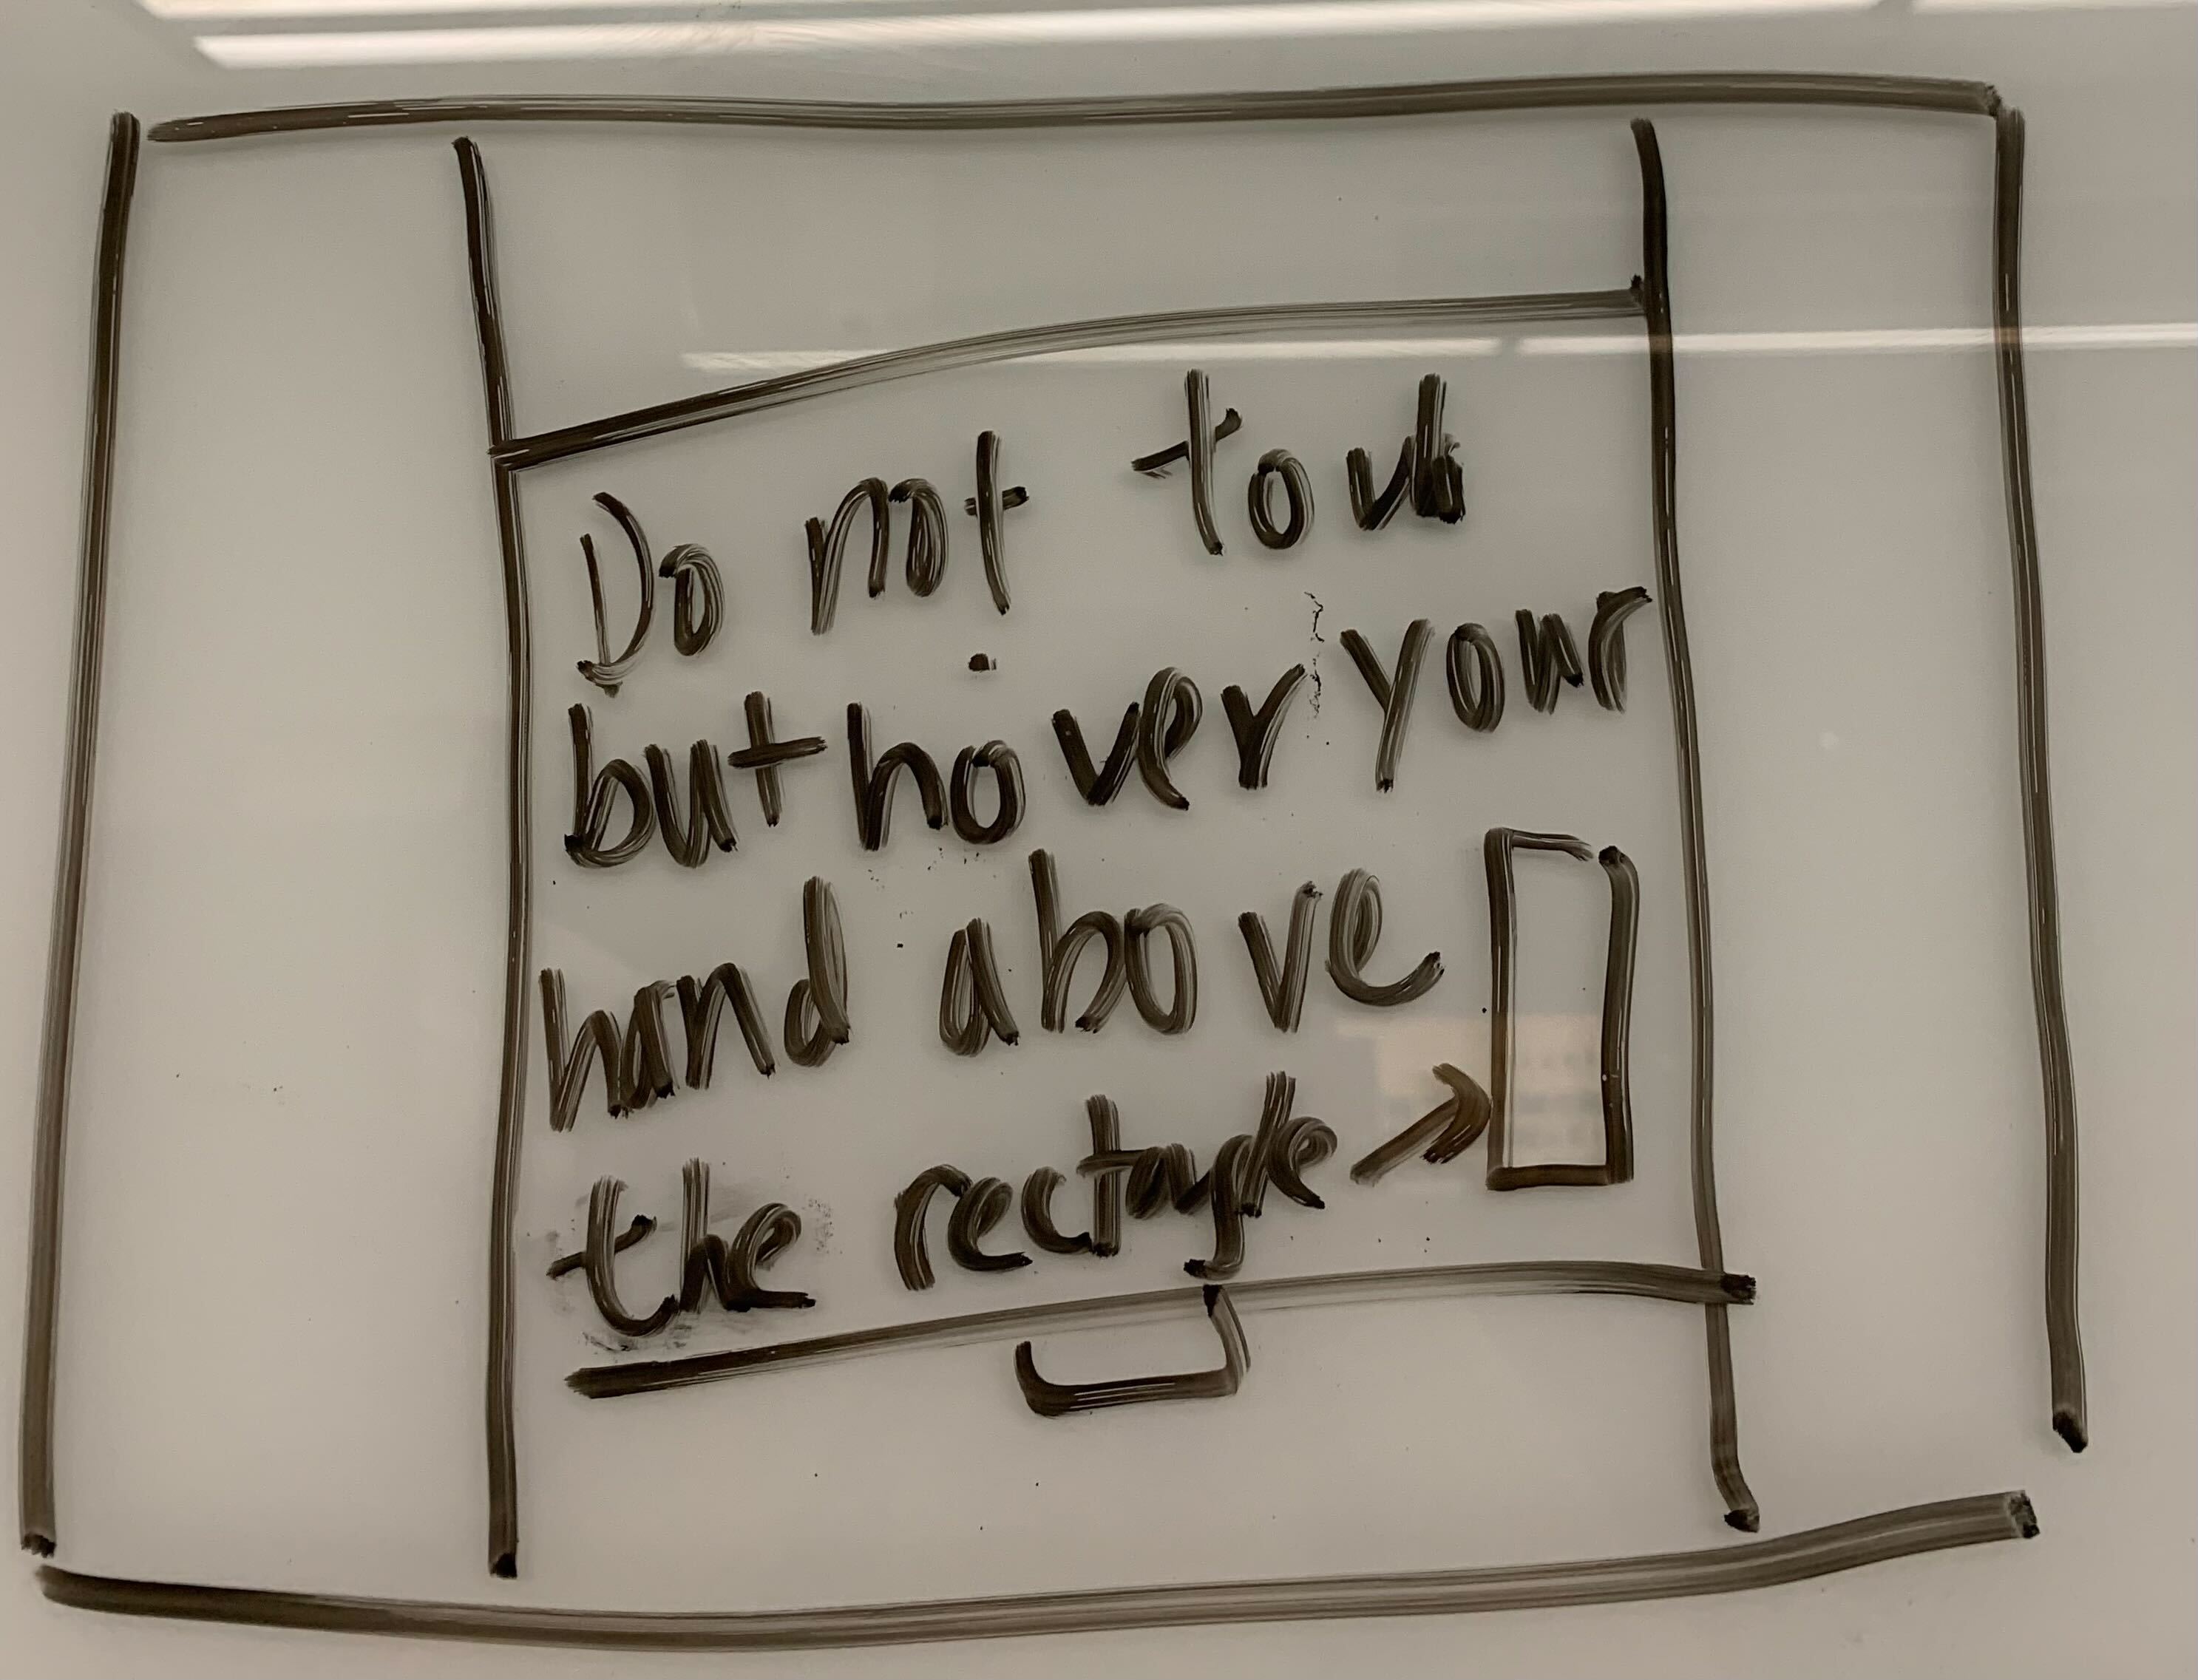 Do not touch
but hover your
hand above
the rectangle →